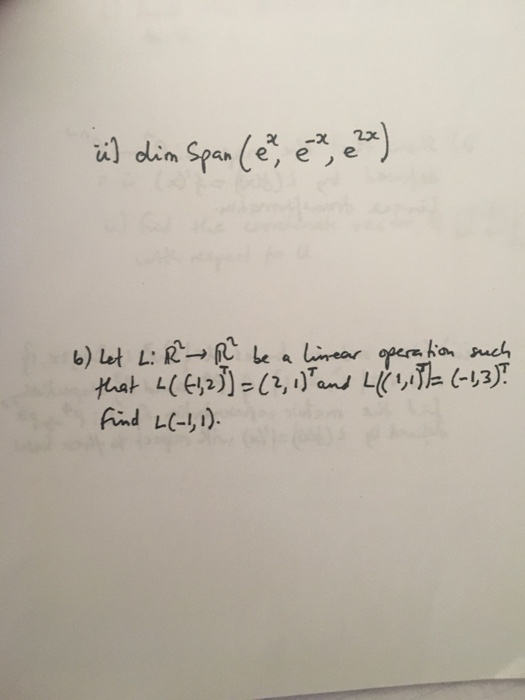 ii) dim Span (eˣ, e⁻ˣ, e²ˣ)
b) Let L: ℝ² → ℝ² be a linear operation such
that L((-1,2)ᵀ) = (2,1)ᵀ and L((1,1)ᵀ) = (-1,3)ᵀ.
Find L(-1,1).